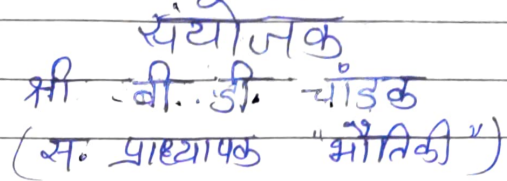 संयोजक
श्री बी. डी. चांडक
(स. प्राध्यापक "भौतिकी")